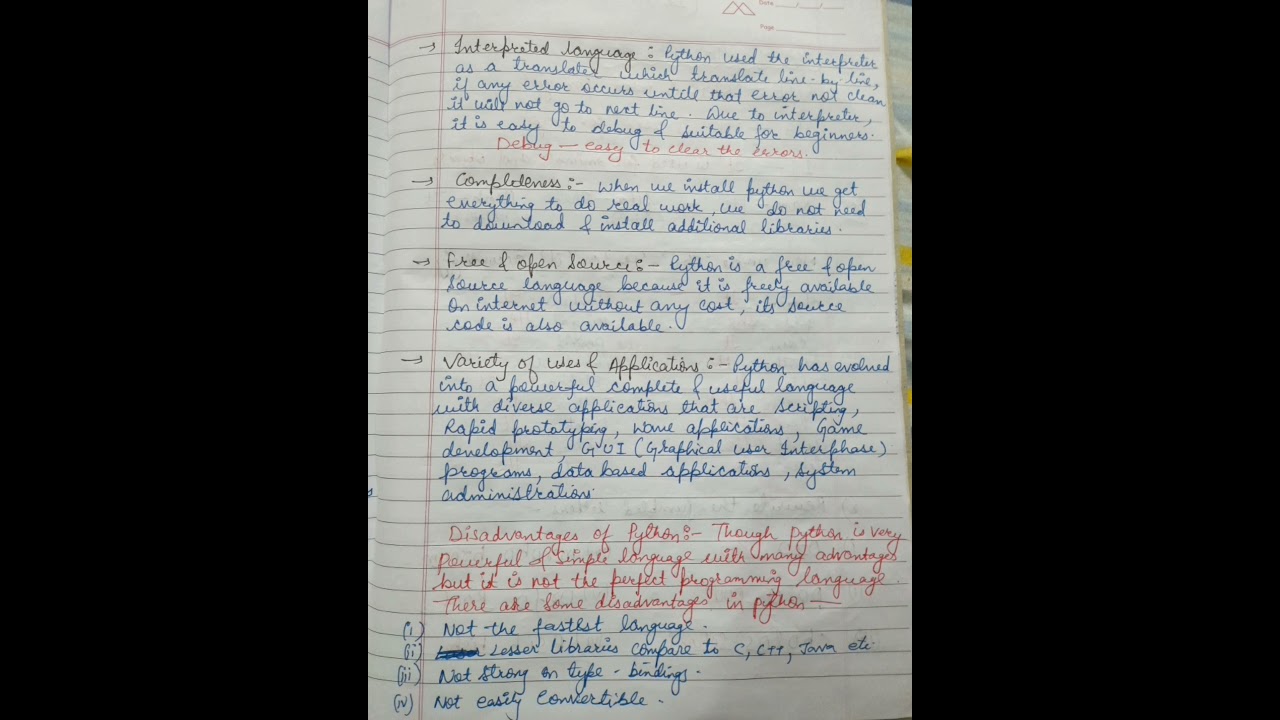 Date
Page
→ Interpreted language : Python used the interpreter
as a translater which translate line-by-line,
if any error occurs untill that error not clean
it will not go to next line. Due to interpreter,
it is easy to debug & suitable for beginners.
Debug — easy to clear the errors.
→ Completeness :- When we install python we get
everything to do real work, we do not need
to download & install additional libraries.
→ Free & open Source :- Python is a free & open
Source language because it is freely available
on internet without any cost, its source
code is also available.
→ Variety of uses & Applications :- Python has evolved
into a powerful complete & useful language
with diverse applications that are scripting,
Rapid prototyping, wave applications, Game
development, GUI (Graphical user Interphase)
programs, data based applications, system
administrations.
Disadvantages of Python :- Though python is very
Powerful & simple language with many advantages
but it is not the perfect programming language.
There are some disadvantages in python —
(i) Not the fastest language.
(ii) Lesser libraries compare to C, C++, Java etc.
(iii) Not strong on type-bindings.
(iv) Not easily Convertible.